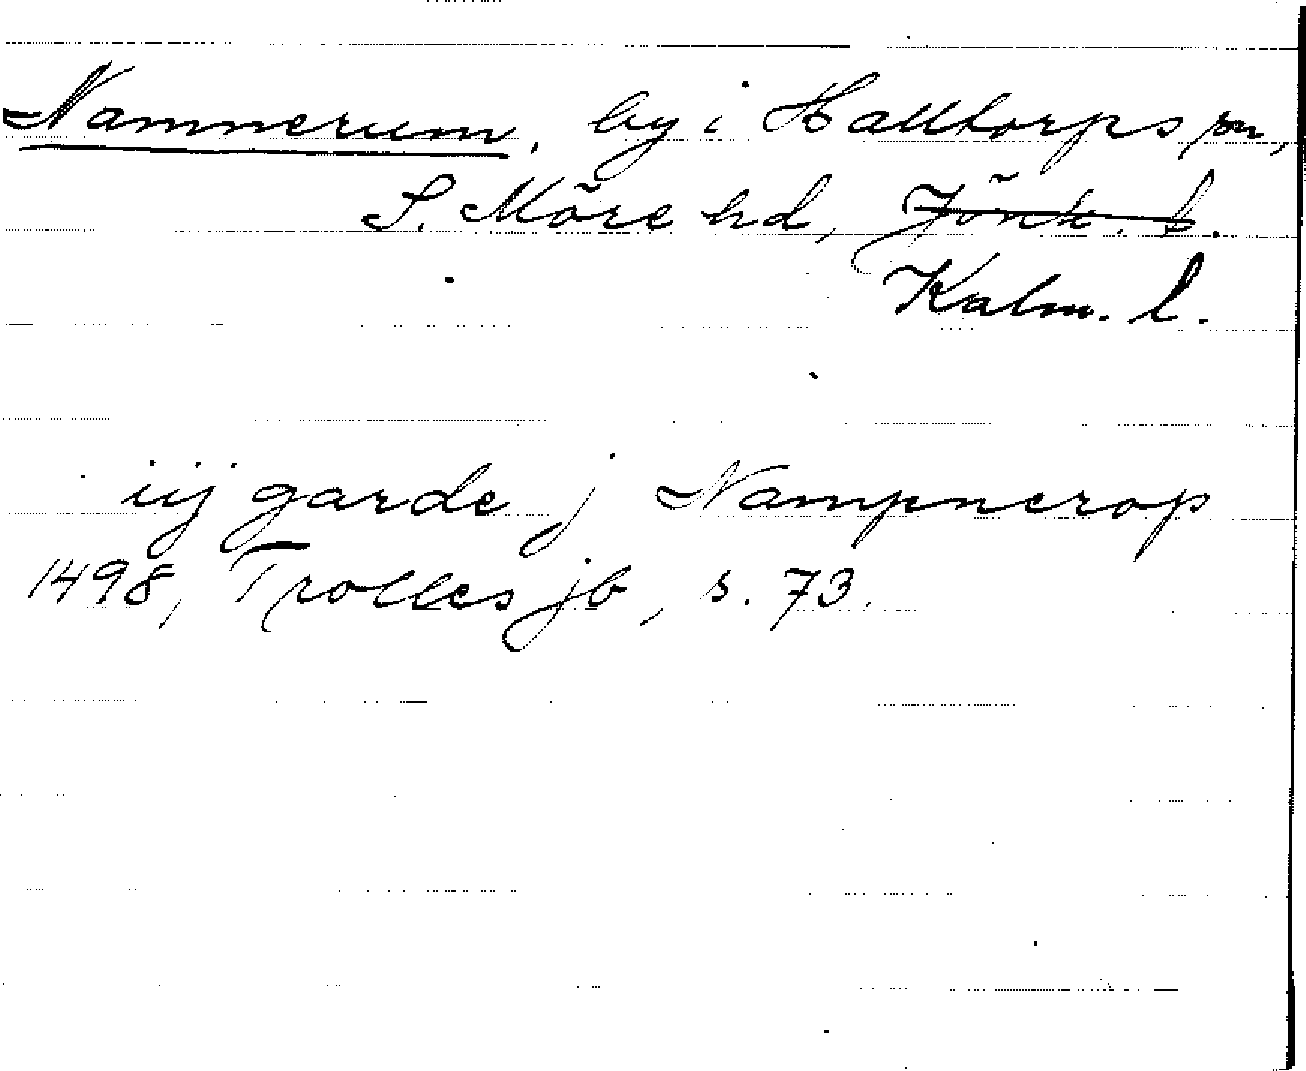 Namnerum, by i Halltorps sn,
S. Möre hd, Jönk. l.
Kalm. l.
iij garde j Nampnerop
1498, Trolles jb, s. 73.